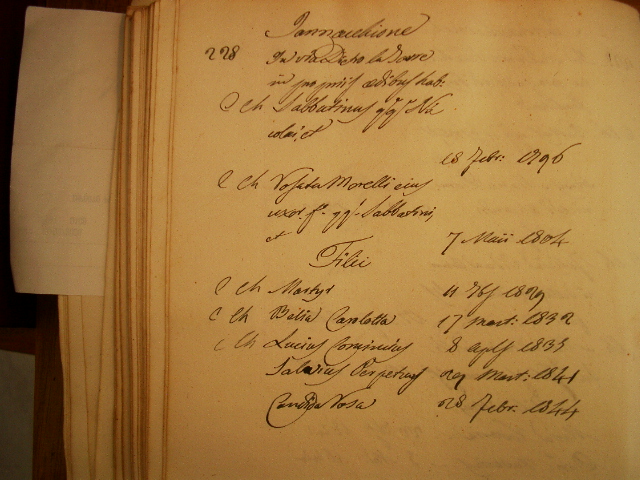 Iannacchione
228 In via Dicto la Torre
in propriis ædibus hab:
C Ch Sabbatinus qq.m Ni
colai, et
18 Febr: 1796
C Ch Rosata Morelli eius
uxor f.a qq.m Sabbatini,
et 7 Maii 1804
Filii
C Ch Martyr 11 1829
C Ch Belia Carlotta 17 Mart: 1832
C Ch Lucius Cominius 8 1835
Salvius Perpetuus 29 Mart: 1841
Candida Rosa 28 Febr. 1844